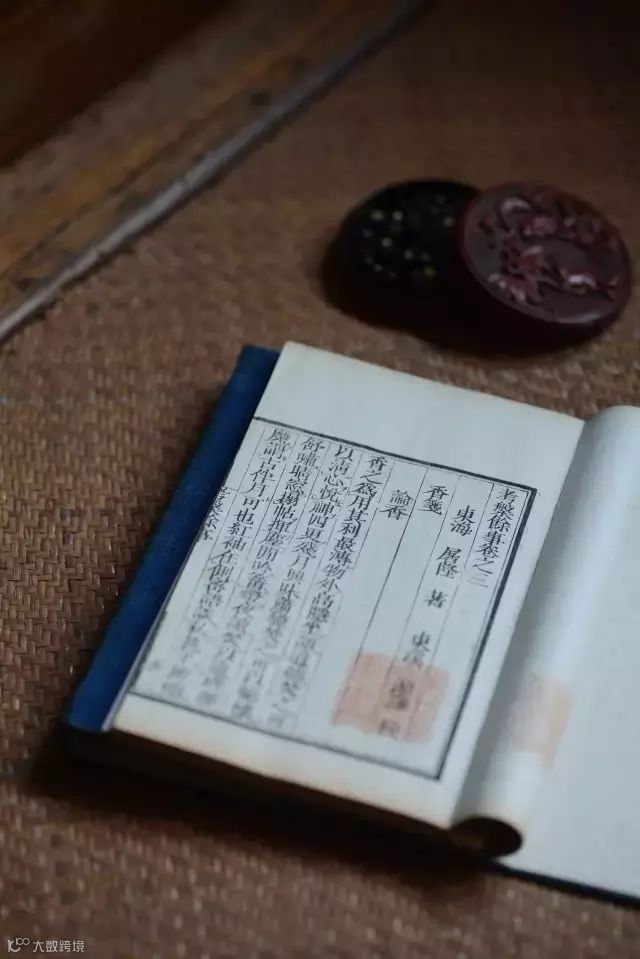 考槃餘事卷之三
東海 屠隆 著 東海
香箋
論香
香之為用其利最溥物外高隱坐語道德焚之可
以清心悅神四更殘月興味蕭騷焚之可以暢懷
舒嘯晴窗搨帖揮麈閒吟篝燈夜讀焚以遠辟睡
魔謂古伴月可也紅袖在側密語談私
考槃餘事
大数跨境